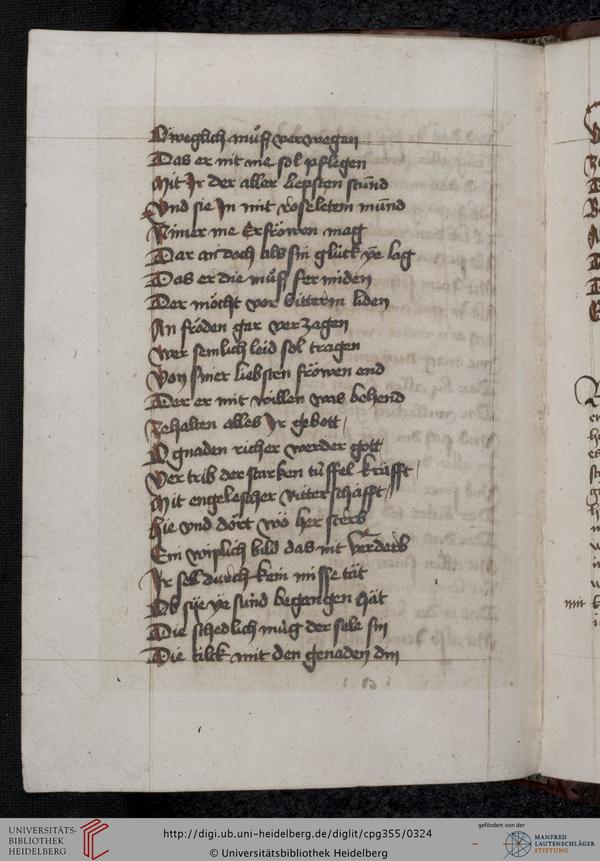 Oweglich muͦß verwegen
Das er nit me sol pflegen
Mit Ir der aller liepsten stund
Vnd sie In mit roseletem mund
Nimer me Erfröwen mag
Dar an doch als sin glück ye lag
Das er die muͦß fermiden
Der möcht vor bitterm liden
An fröden gar verzagen
Wer semlich leid sol tragen
Von siner liebsten fröwen end
Der er mit willen was behend
Zehalten alles Ir gebott
O gnaden richer werder gott
Ver trib der starken tüffel kräfft
Mit engelescher ritter schafft
Hie vnd dört wo her sterb
Ein wiplich bild das nit verderb
Ir sel durch kein misse tät
Ob sye ye sund begangen hät
Die schedlich mug der sele sin
Die tilck mit den genaden din
mit
UNIVERSITÄTS-
BIBLIOTHEK
HEIDELBERG
http://digi.ub.uni-heidelberg.de/diglit/cpg355/0324
© Universitätsbibliothek Heidelberg
gefördert von der
MANFRED
LAUTENSCHLÄGER
STIFTUNG